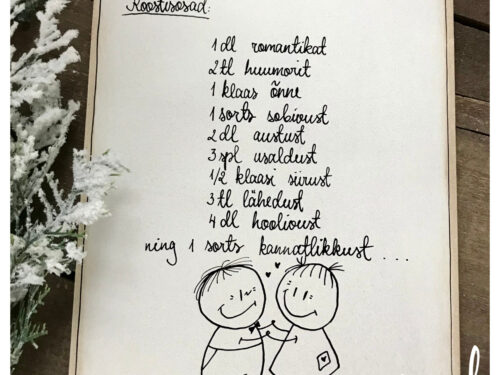 Koostisosad:
1 dl romantikat
2 tl huumorit
1 klaas õnne
1 sorts sobivust
2 dl austust
3 spl usaldust
1/2 klaasi siirust
3 tl lähedust
4 dl hoolivust
ning 1 sorts kannatlikkust ...